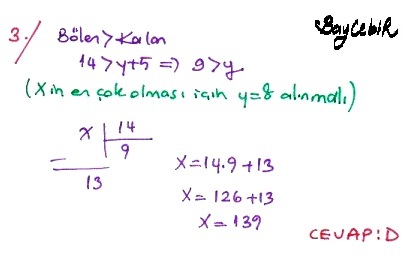 BayCebiR
3./ Bölen>Kalan
14>y+5 => 9>y
(X in en çok olması için y=8 alınmalı)
x 14
9
13
X=14.9+13
X=126+13
X=139
CEVAP:D